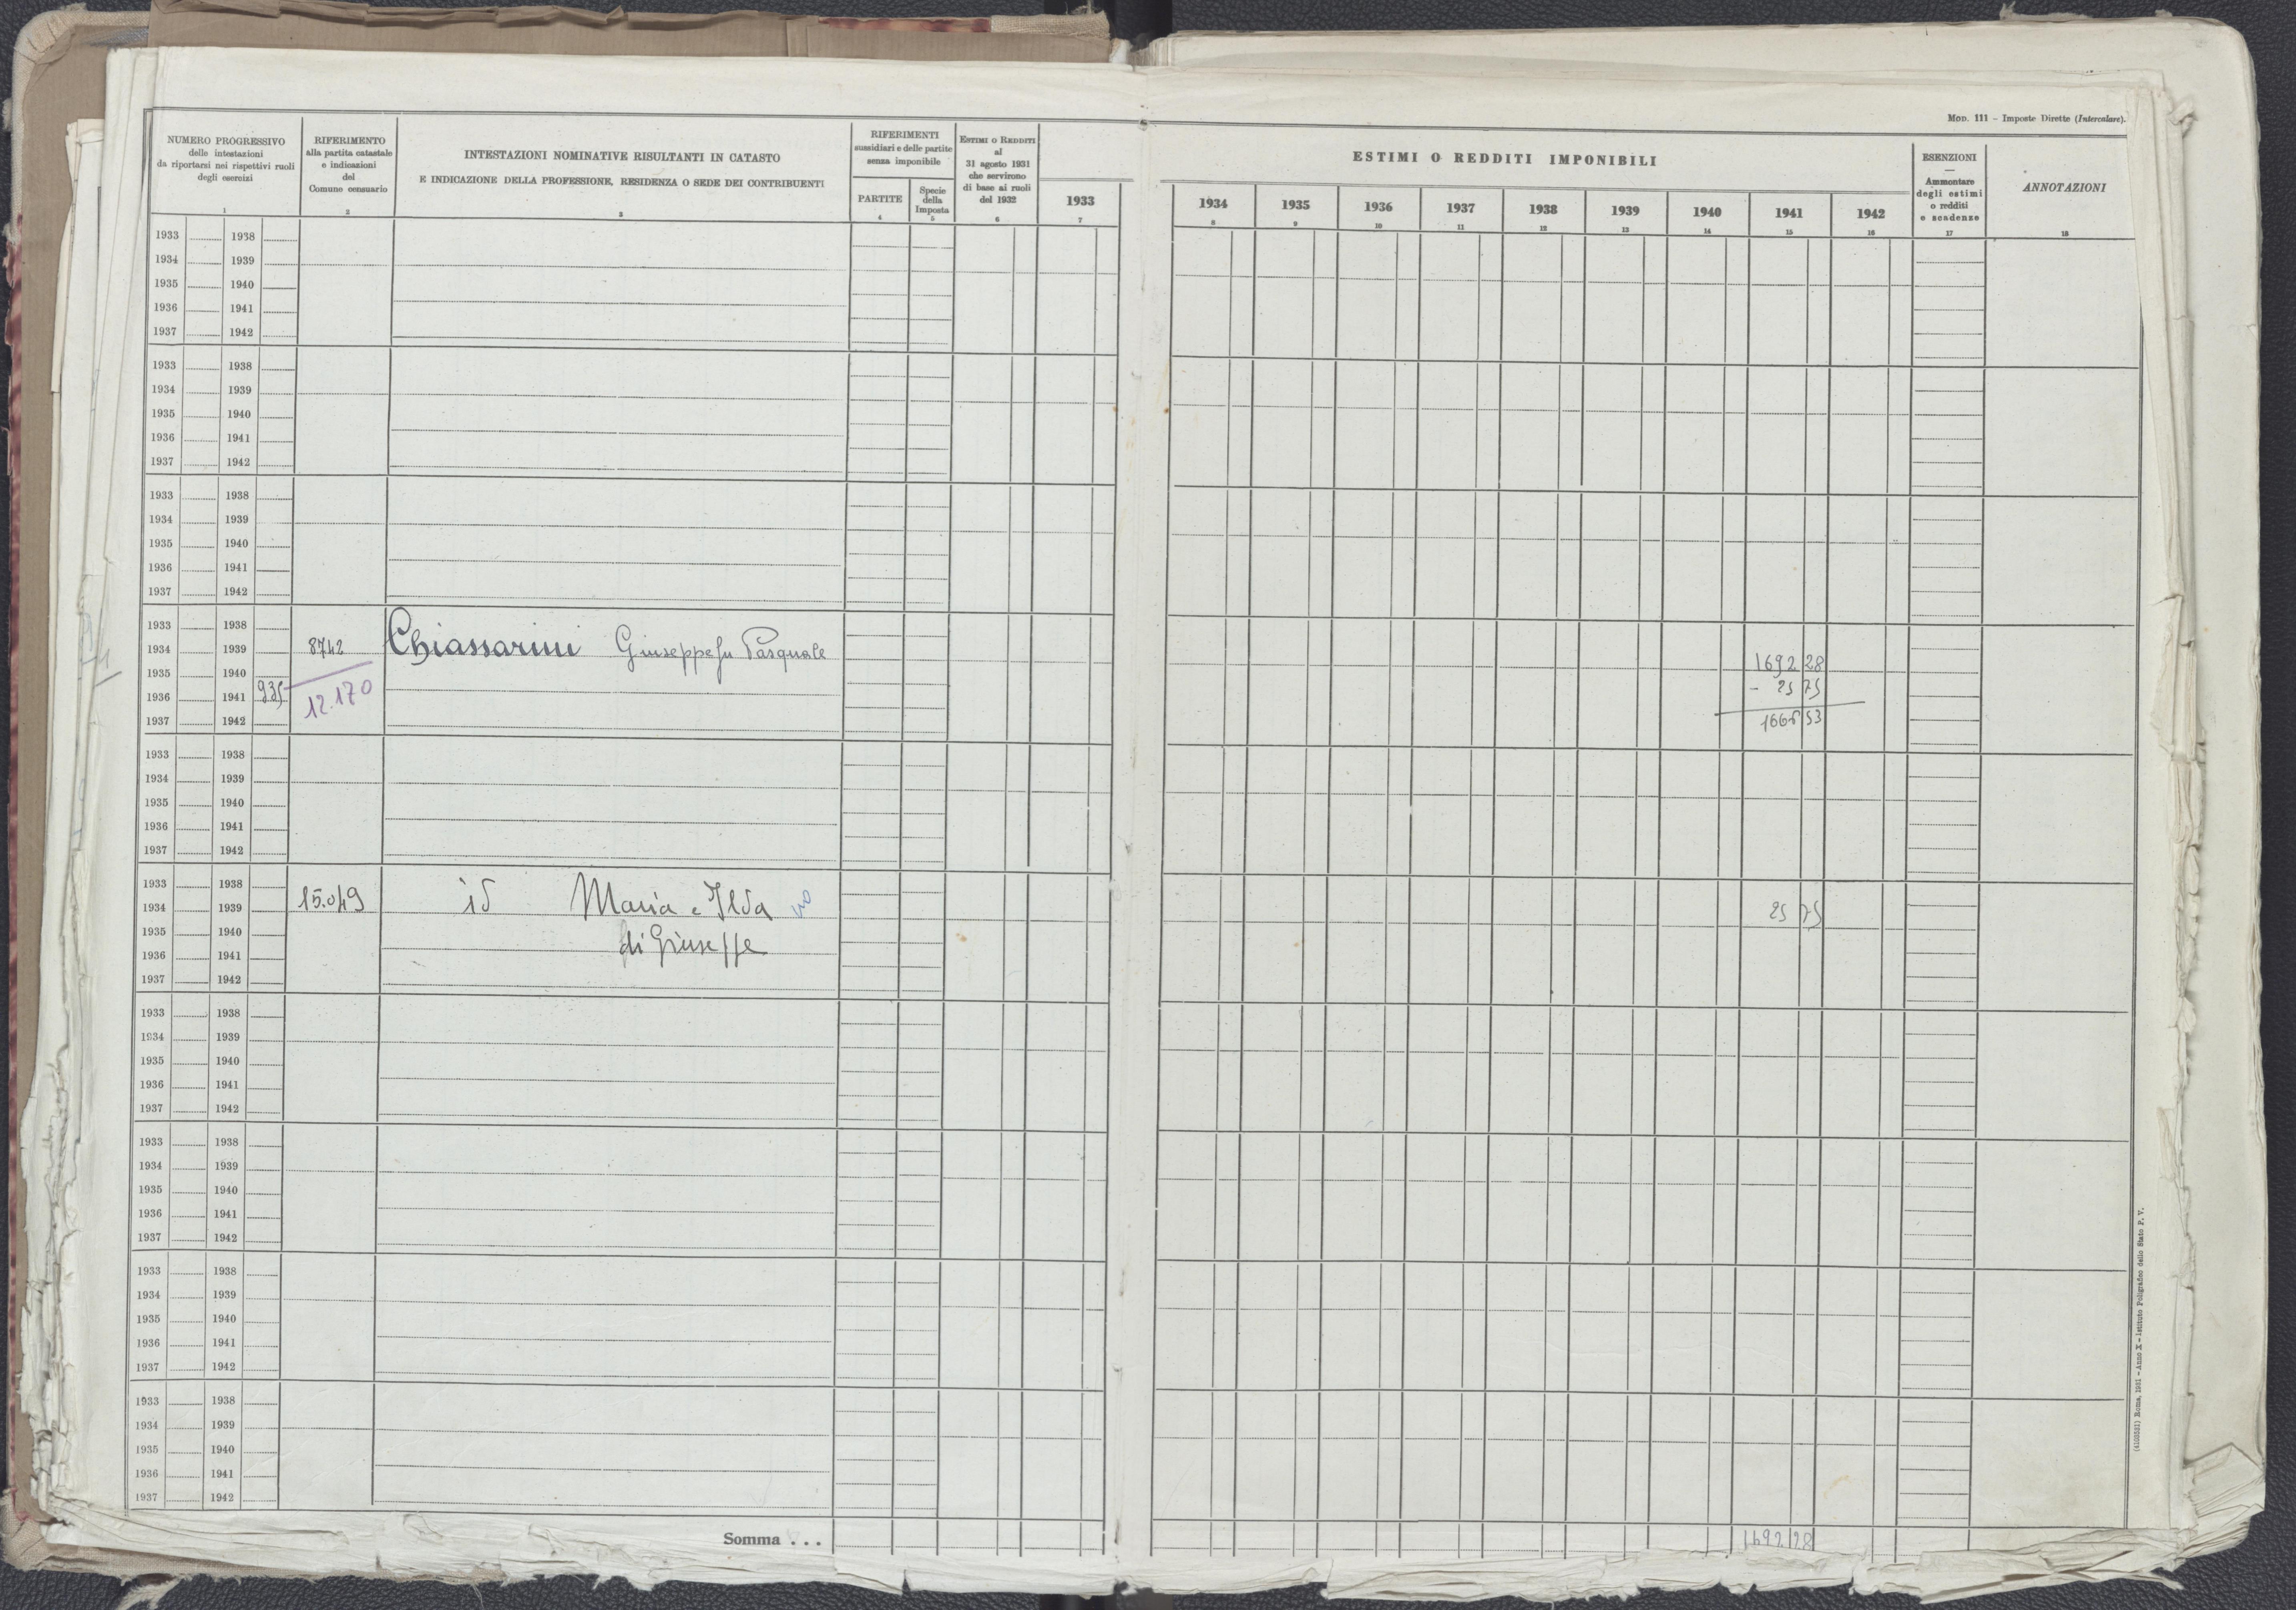 MOD. 111 – Imposte Dirette (Intercalare).
NUMERO PROGRESSIVO
delle intestazioni
da riportarsi nei rispettivi ruoli
degli esercizi
1
RIFERIMENTO
alla partita catastale
e indicazioni
del
Comune censuario
2
INTESTAZIONI NOMINATIVE RISULTANTI IN CATASTO
E INDICAZIONE DELLA PROFESSIONE, RESIDENZA O SEDE DEI CONTRIBUENTI
3
RIFERIMENTI
sussidiari e delle partite
senza imponibile
PARTITE
4
Specie
della
Imposta
5
ESTIMI O REDDITI
al
31 agosto 1931
che servirono
di base ai ruoli
del 1932
6
1933
7
ESTIMI O REDDITI IMPONIBILI
1934
8
1935
9
1936
10
1937
11
1938
12
1939
13
1940
14
1941
15
1942
16
ESENZIONI
—
Ammontare
degli estimi
o redditi
e scadenze
17
ANNOTAZIONI
18
1933 1938
1934 1939
1935 1940
1936 1941
1937 1942
1933 1938
1934 1939
1935 1940
1936 1941
1937 1942
1933 1938
1934 1939
1935 1940
1936 1941
1937 1942
1933 1938
1934 1939 8742 Chiassarini Giuseppe fu Pasquale
1692 28
1935 1940
1936 1941 935 12.170
- 25 75
1937 1942
1666 53
1933 1938
1934 1939
1935 1940
1936 1941
1937 1942
1933 1938
1934 1939 15.049 id Maria e Ilda 25 75
1935 1940
di Giuseppe
1936 1941
1937 1942
1933 1938
1934 1939
1935 1940
1936 1941
1937 1942
1933 1938
1934 1939
1935 1940
1936 1941
1937 1942
1933 1938
1934 1939
1935 1940
1936 1941
1937 1942
1933 1938
1934 1939
1935 1940
1936 1941
1937 1942
Somma . . . 1692 28
(4103531) Roma, 1931 – Anno X – Istituto Poligrafico dello Stato P. V.